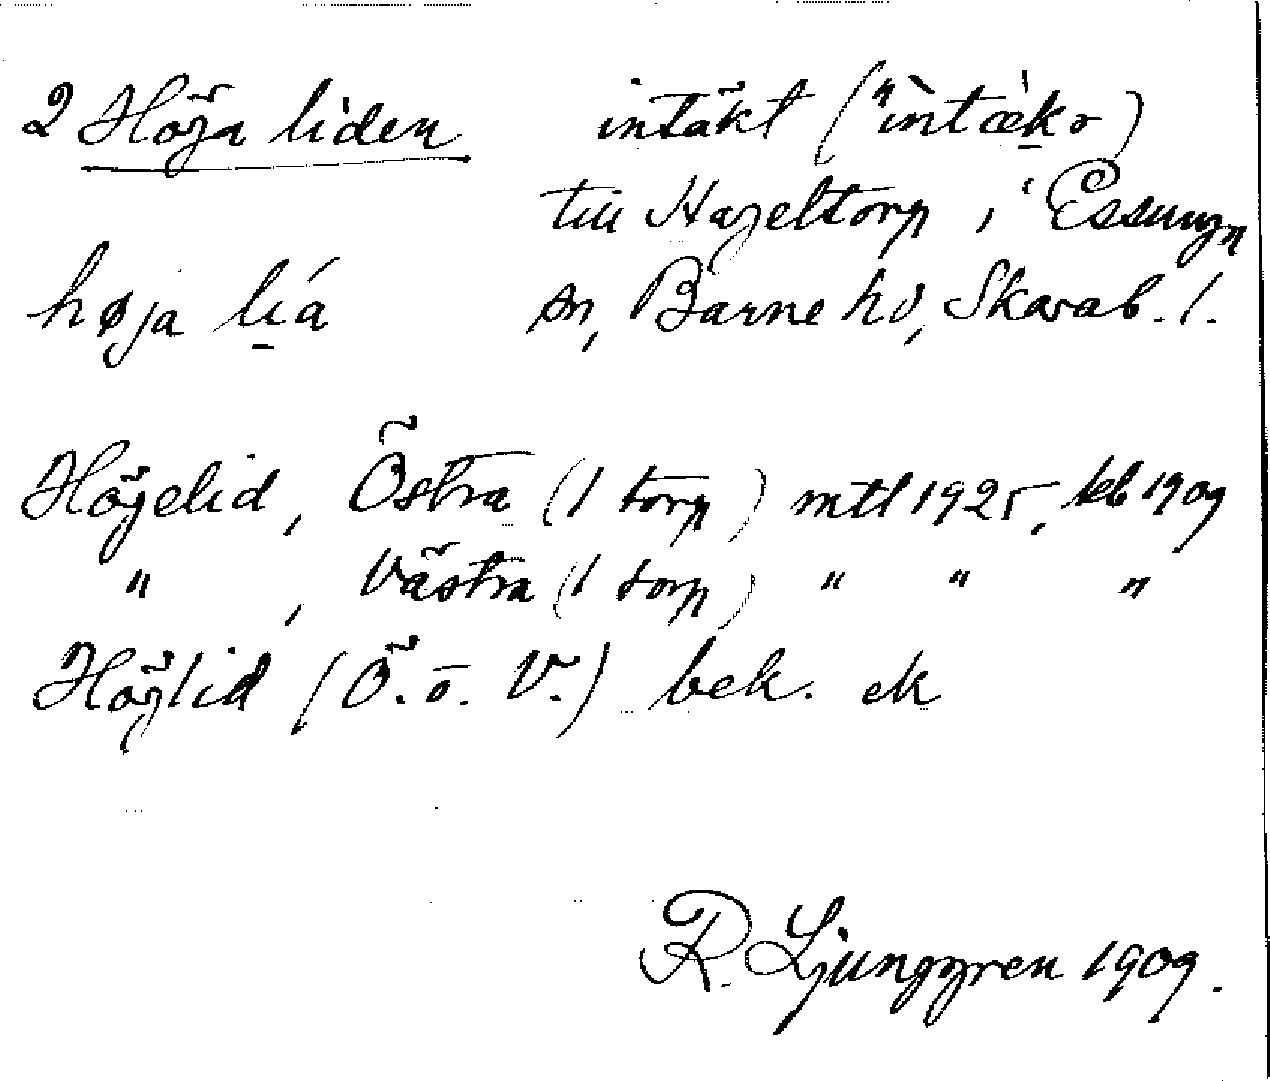 2 Höga liden intäkt ("ìntæko)
till Hageltorp i Essunga
høja liá sn, Barne hd, Skarab. l.
Högelid, Östra (1 torp) mtl 1925, kb 1909
" , Västra (1 torp) " " "
Höglid (Ö. o. V.) bek. ek
R. Ljunggren 1909.